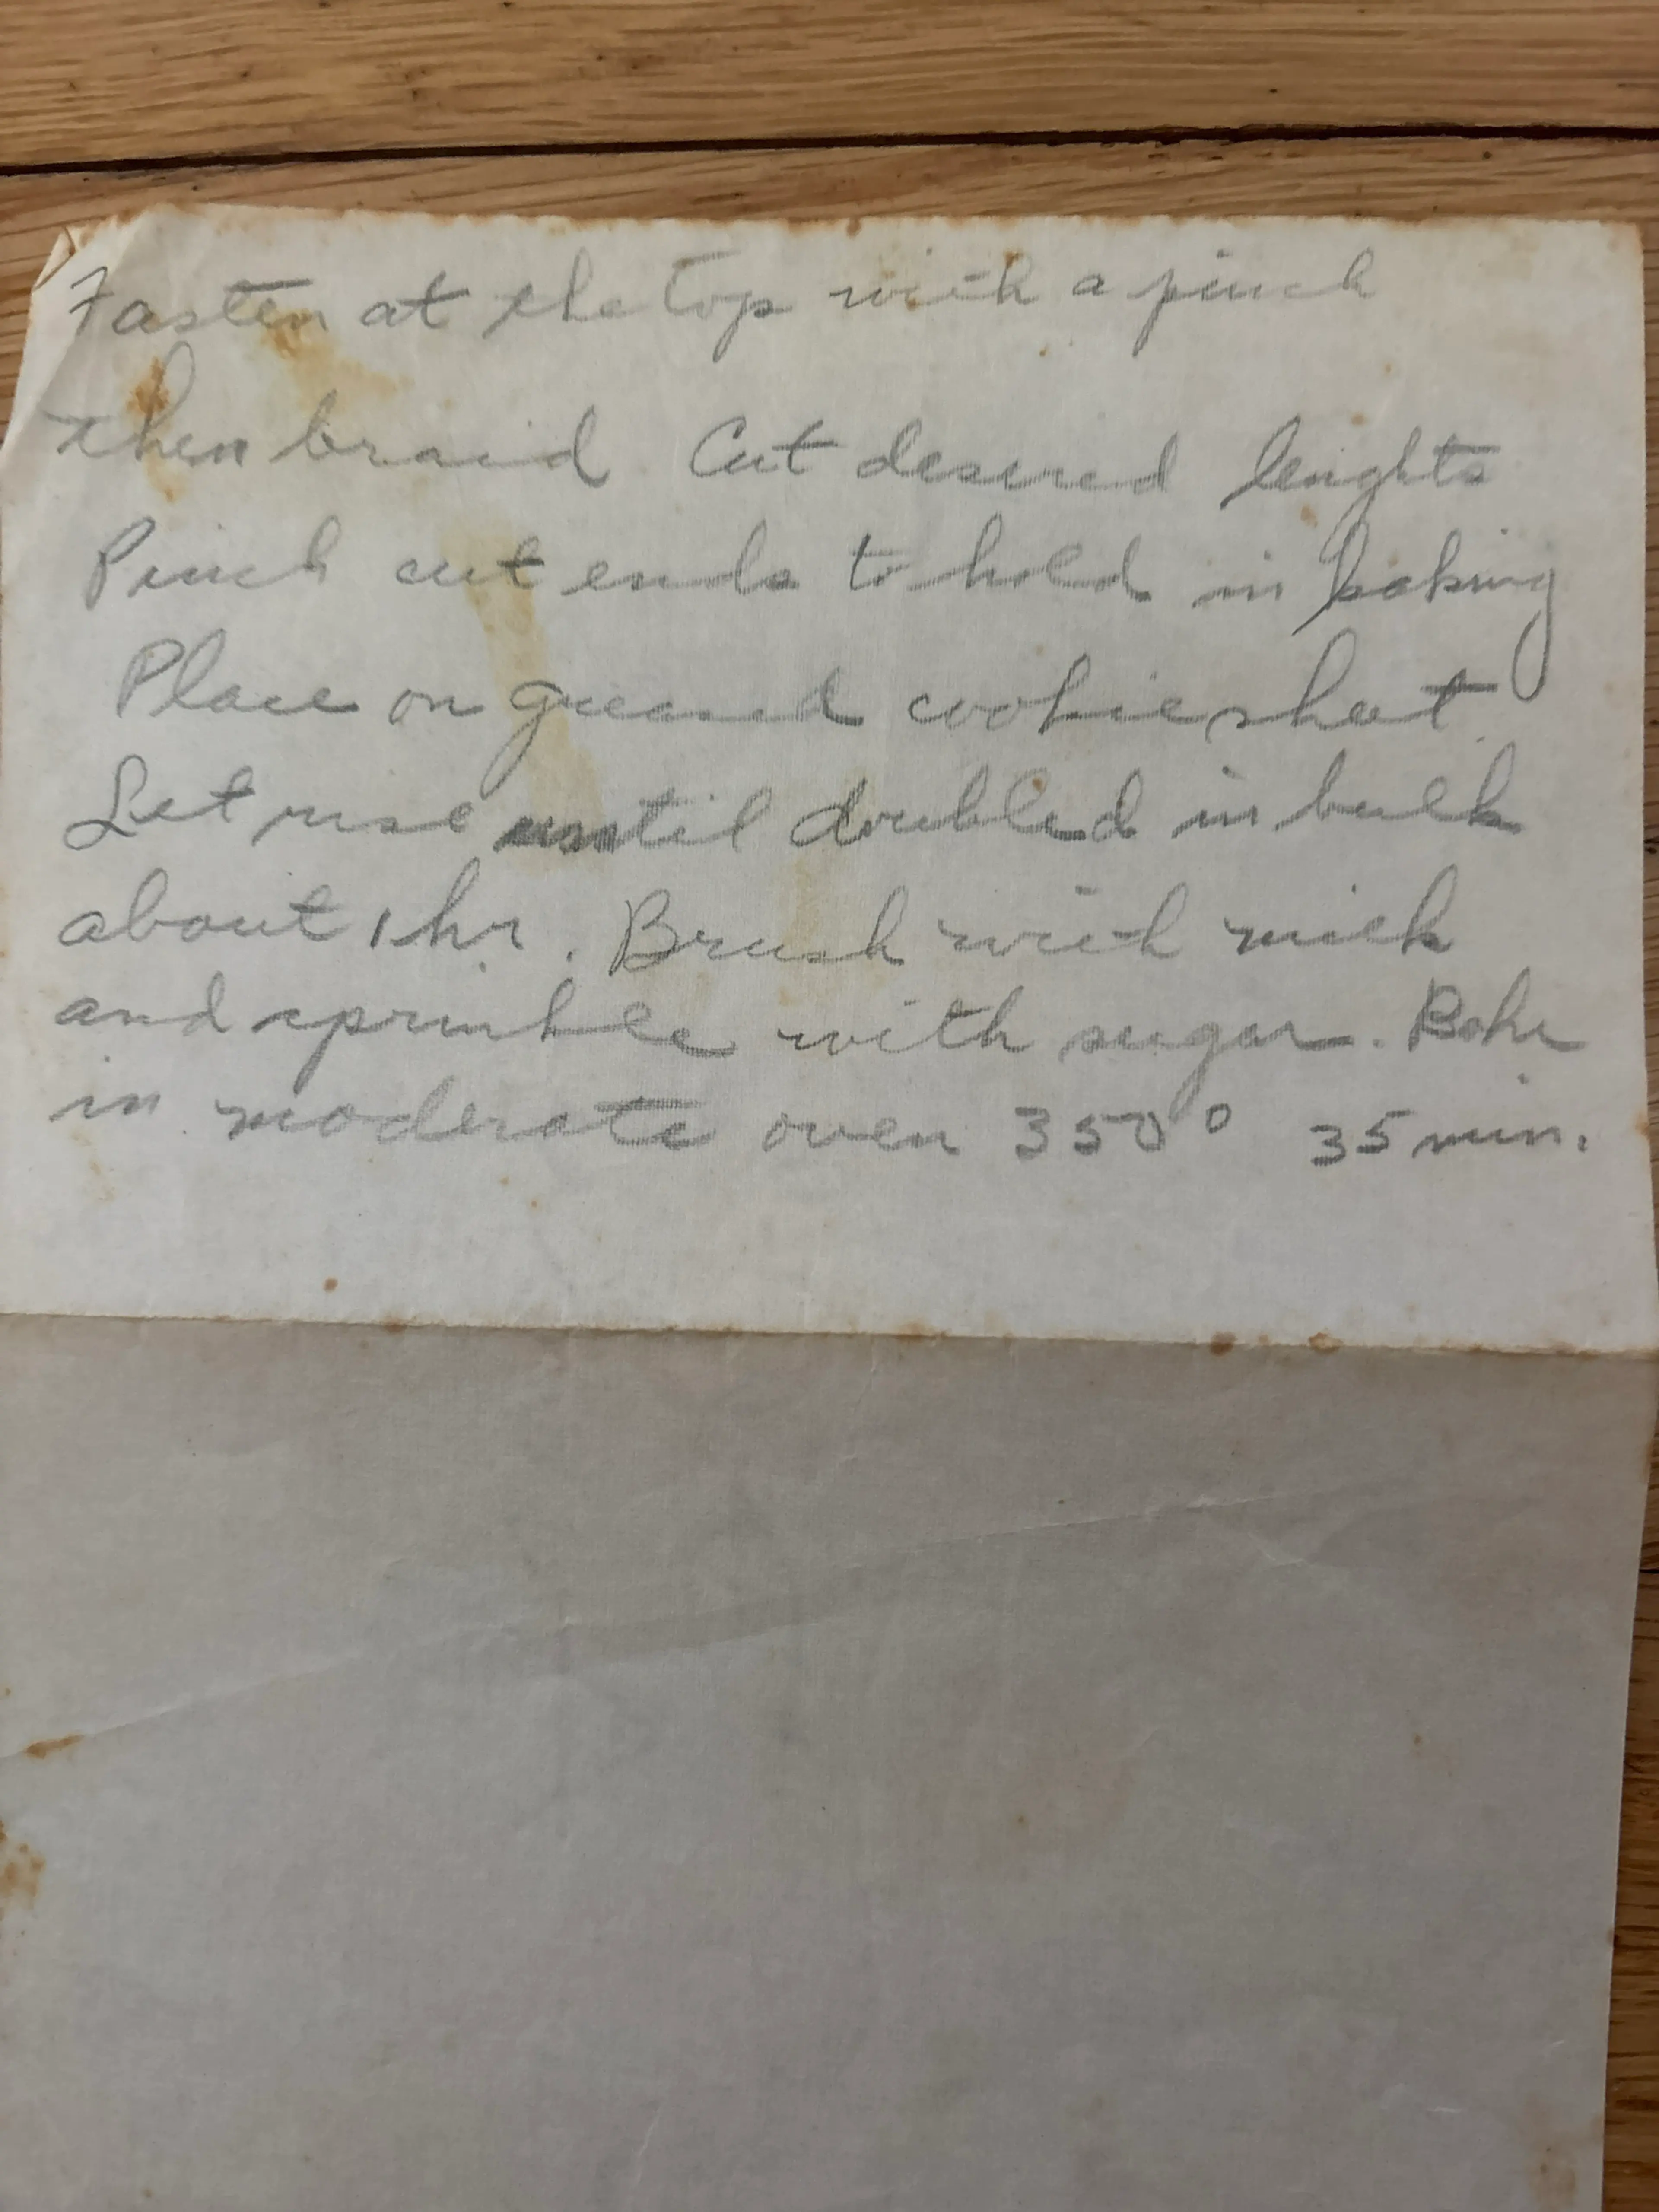 Fasten at the top with a pinch
then braid Cut desired lenghts
Pinch cut ends to hold in baking
Place on greased cookie sheet.
Let rise until doubled in bulk
about 1 hr. Brush with milk
and sprinkle with sugar. Bake
in moderate oven 350° 35 min.